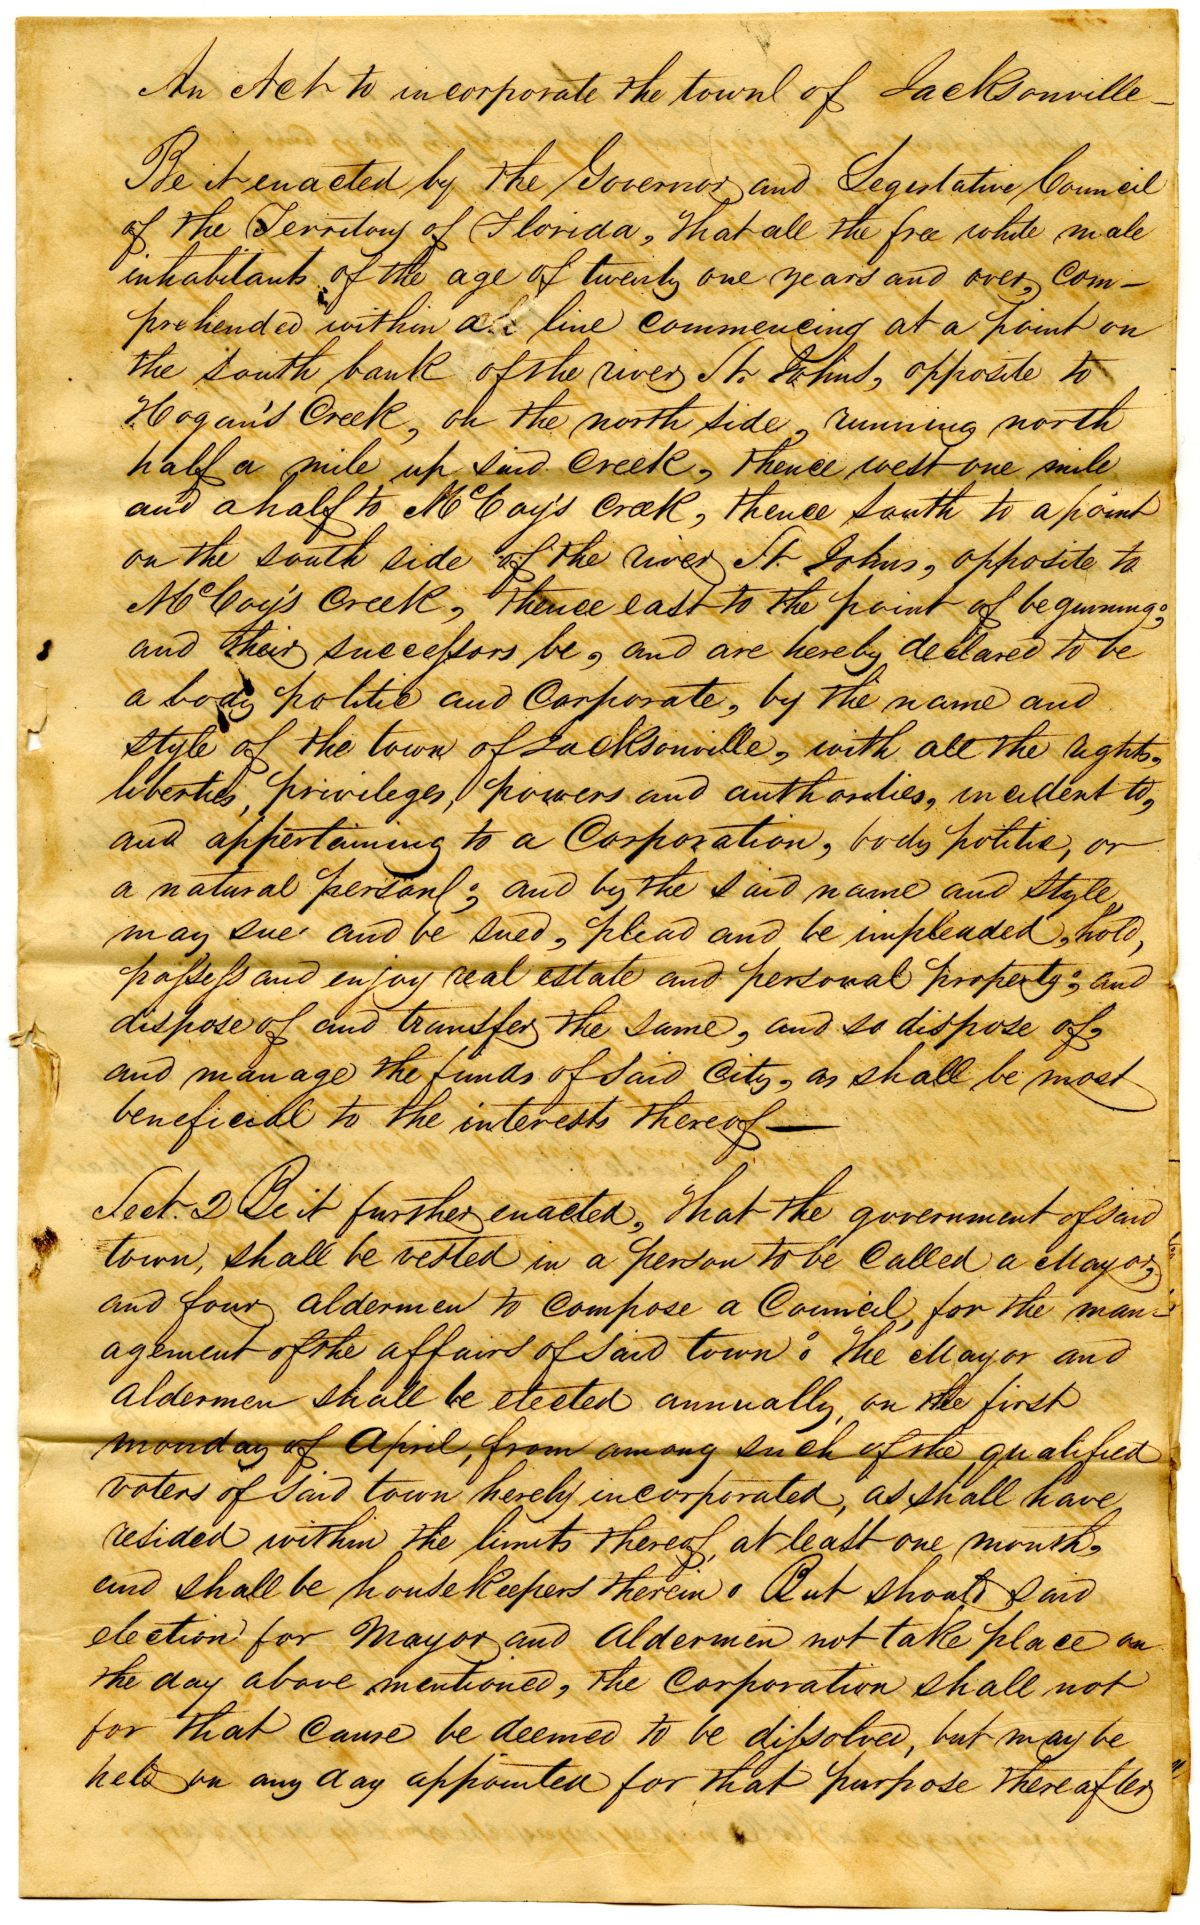 An Act to incorporate the town of Jacksonville—
Be it enacted by the Governor and Legislative Council
of the Territory of Florida, That all the free white male
inhabitants of the age of twenty one years and over, com-
prehended within a line commencing at a point on
the south bank of the river St. Johns, opposite to
Hogan's Creek, on the north side, running north
half a mile up said Creek, thence west one mile
and a half to McCoy's Creek, thence south to a point
on the south side of the river St. Johns, opposite to
McCoy's Creek, thence east to the point of beginning;
and their successors be, and are hereby declared to be
a body politic and Corporate, by the name and
style of the town of Jacksonville, with all the rights,
liberties, privileges, powers and authorities, incident to,
and appertaining to a Corporation, body politic, or
a natural person; and by the said name and style,
may sue and be sued, plead and be impleaded, hold,
possess and enjoy real estate and personal property; and
dispose of and transfer the same, and so dispose of,
and manage the funds of said City, as shall be most
beneficial to the interests thereof—
Sect. 2 Be it further enacted, That the government of said
town, shall be vested in a person to be Called a Mayor,
and four aldermen to compose a Council, for the man-
agement of the affairs of said town: The Mayor and
Aldermen shall be elected annually, on the first
monday of April, from among such of the qualified
voters of said town hereby incorporated, as shall have
resided within the limits thereof, at least one month,
and shall be housekeepers therein. But should said
election for Mayor and Aldermen not take place on
the day above mentioned, the Corporation shall not
for that Cause be deemed to be dissolved, but may be
held on any day appointed for that purpose thereafter